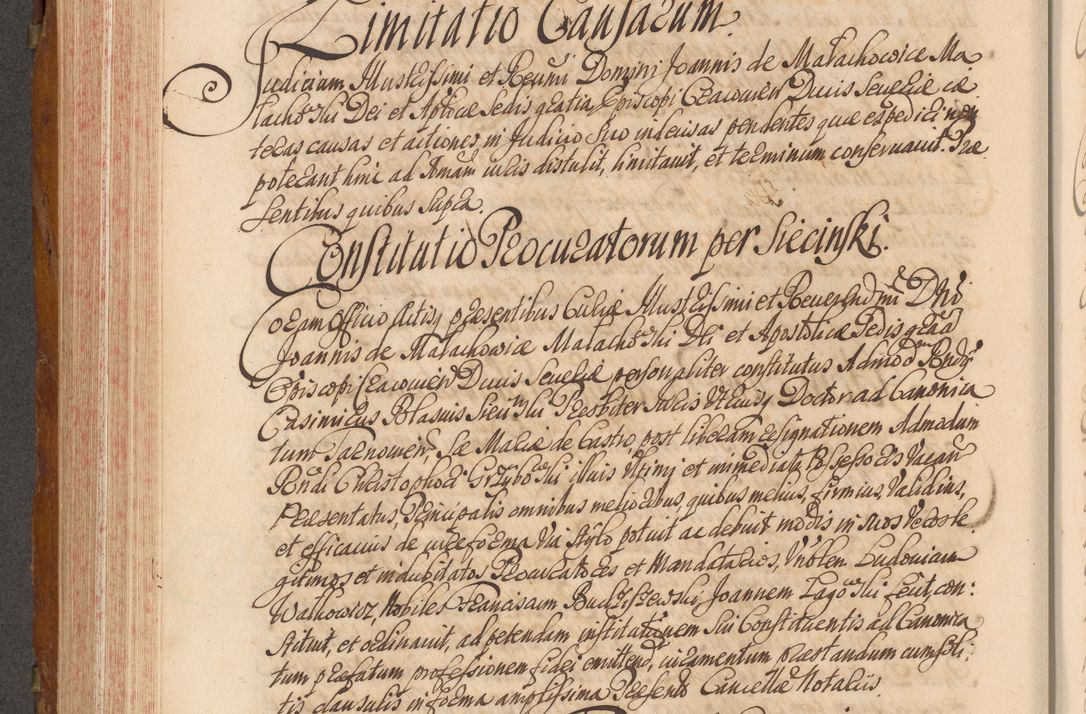 Limitatio Causarum.
Judicium Illustrissimi et Rever̃mi Domini Joannis de Małachowice Ma
łachowski Dei et Aplicæ Sedis gratia Episcopi Cracovien̄ Ducis Severiæ cæ
teras causas et actiones in Judicio suo indecisas pendentes quæ expediri non
poterant hinc ad Pr̃mam Juris distulit, limitavit, et terminum conservavit. Præ
sentibus quibus supra.
Constitutio Procuratorum per Siecinski.
Coram Officio Actisq̃ præsentibus Curiæ Illustrissimi et Reverend̃mi Dñi
Joannis de Małachowice Małachowski Dei et Apostolicæ Sedis gr̃a
Episcopi Cracovien̄ Ducis Severiæ personaliter constitutus Admod̃ Rñdg
Casimirus Blasius Siecinski Presbiter Juris Utriusq̃ Doctor ad Canonica
tum Tarnovien̄, Sæ Mariæ de Castro, post liberam resignationem Admodum
Rñdi Christophori Grzybowski illius ultimi et immediati Possessoris vacan̄
Præsentatus, Principalis omnibus melioribus, quibus melius, firmius, validius,
et efficacius de jure forma via stylo potuit ac debuit modis in suos veros le
gitimos et indubitatos Procuratores et Mandatarios, Nobilem Ludovicum
Walkowicz, Nobiles Franciscum Joannem Łagowski fecit, con:
stituit, et ordinavit, ad petendam institutionem sui Constituentis ad Canonica
tum præfatum professionem fidei emittend̃, juramentum præstandum cum soli:
tis clausulis in forma amplissima Præsentib̃ Cancellariæ Notariis.